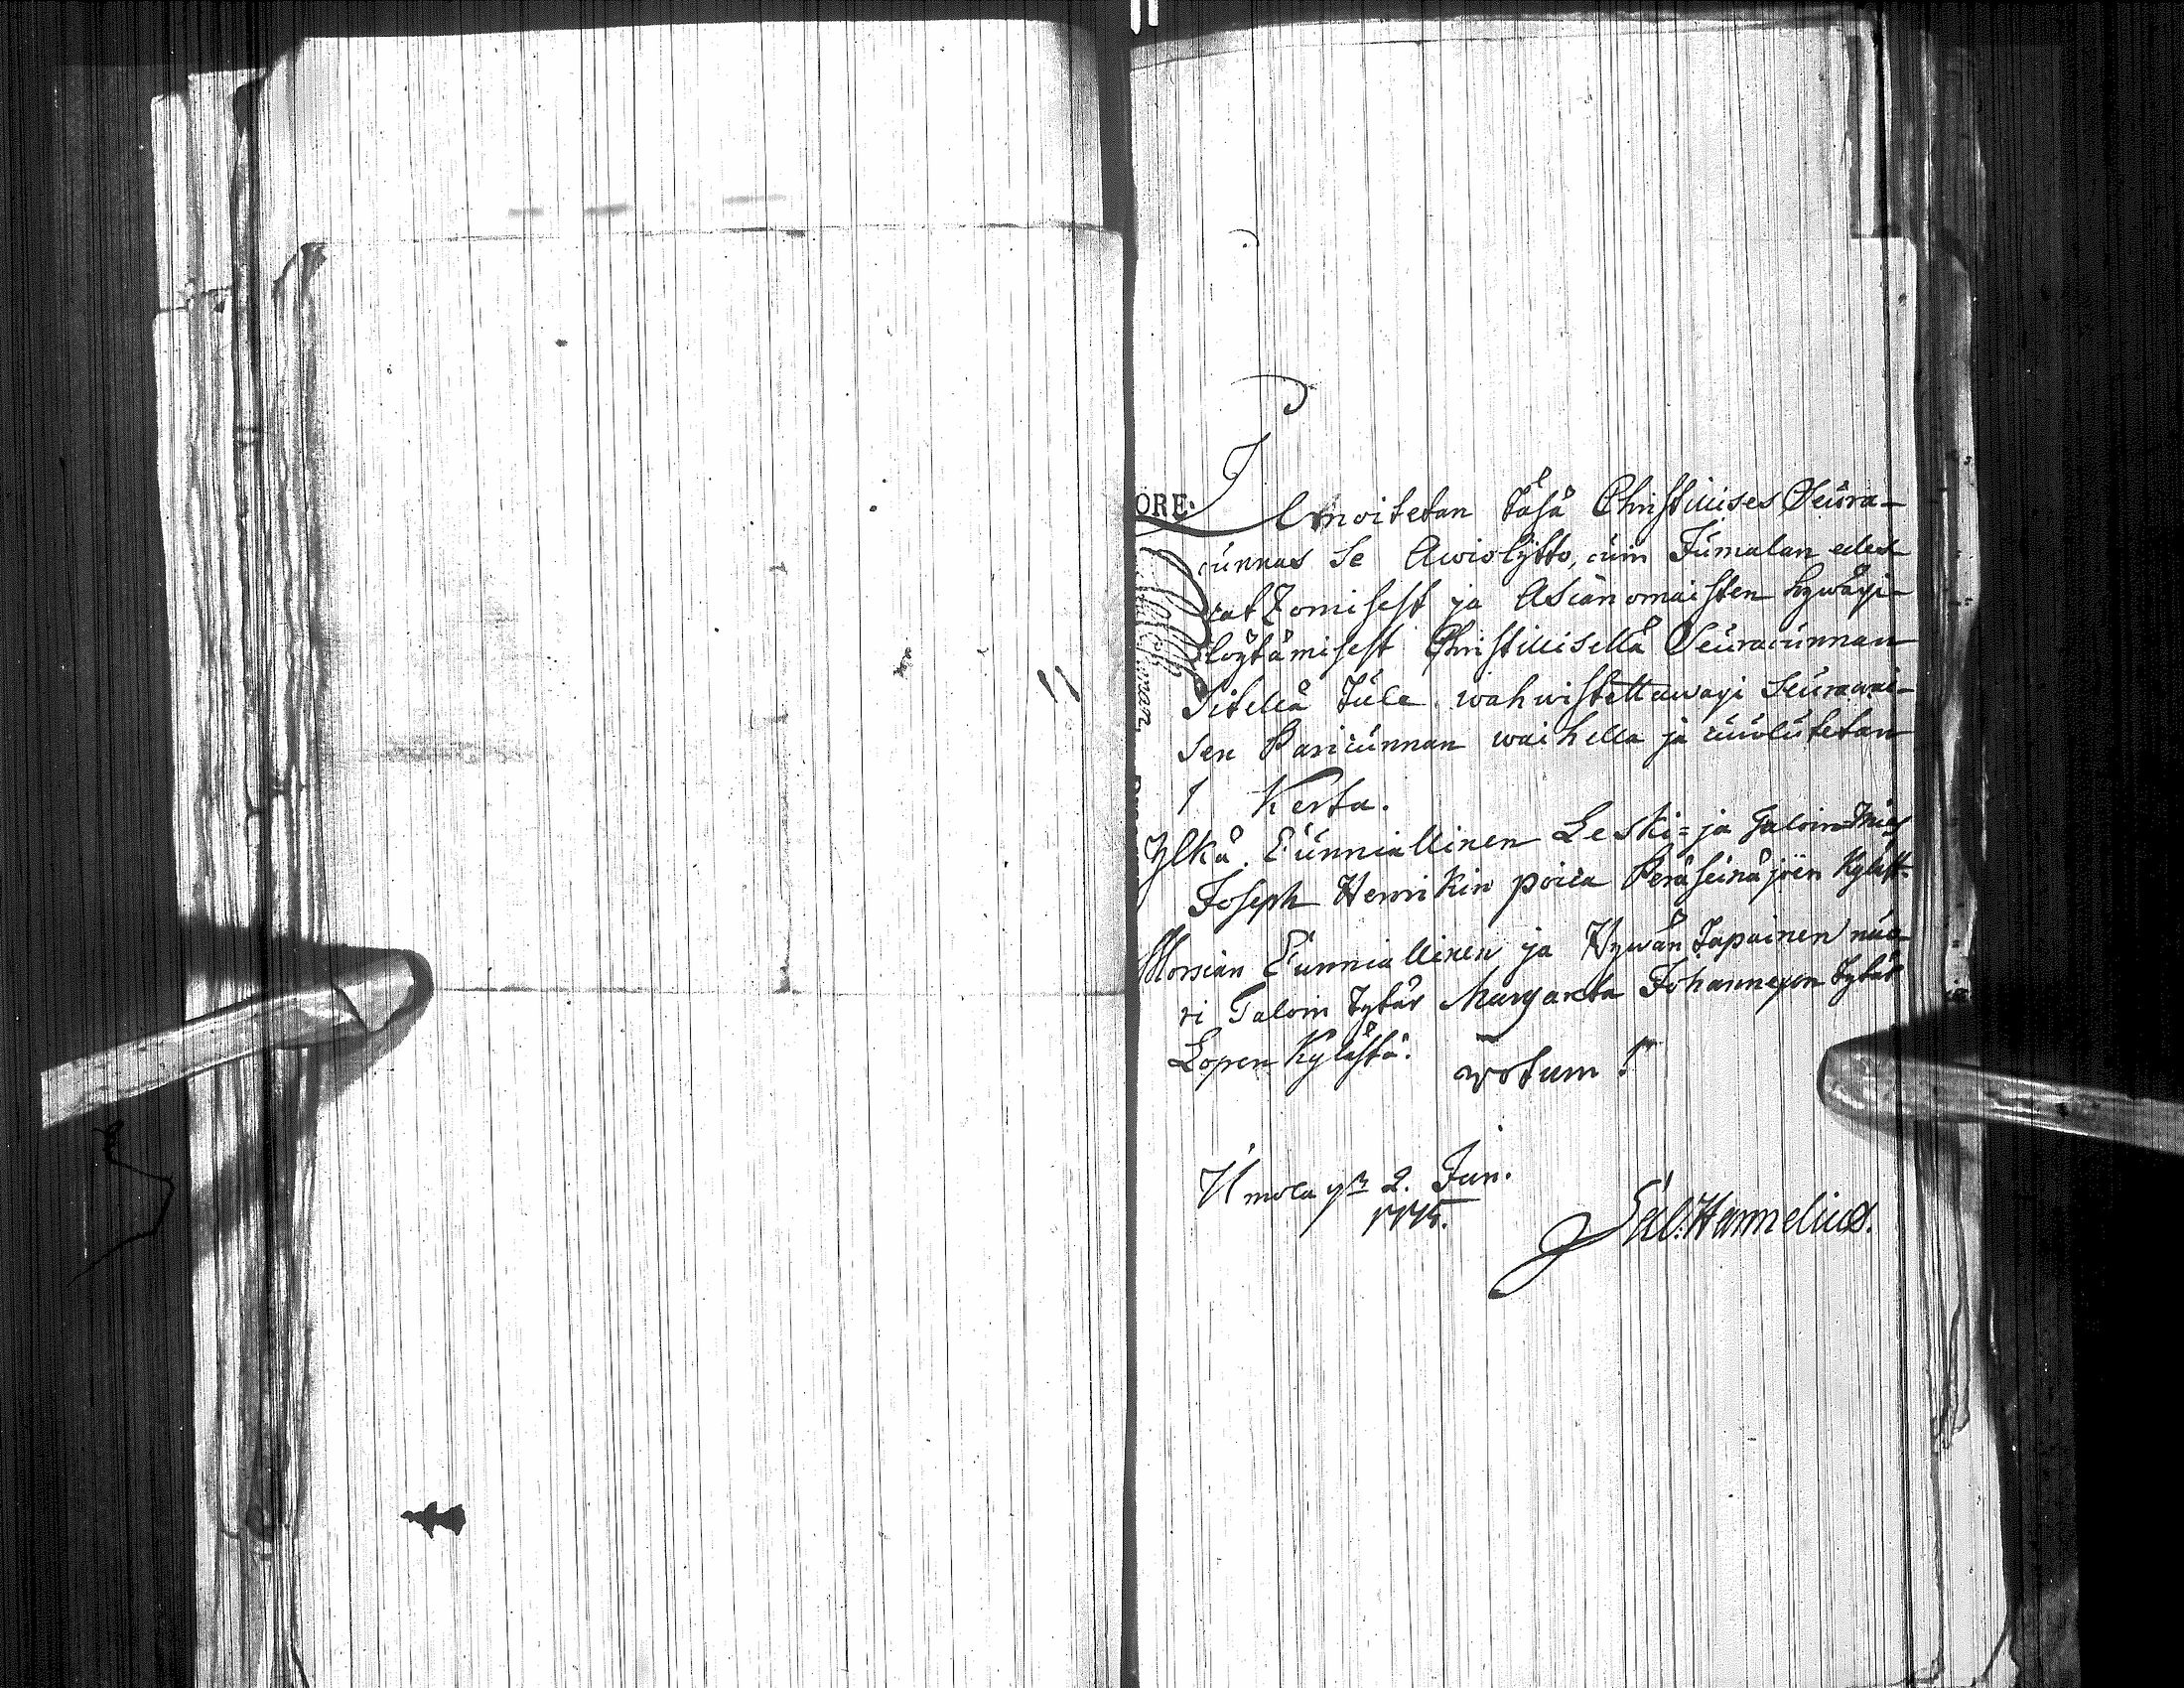 ORE.
Ilmoitetan Täsä Christillises Seura-
cunnas se Awiolijtto, cuin Jumalan edes
catzomisest ja Asianomaisten hywäxi-
löytämisest Christillisellä Seuracunnan
Sitellä Tule wahwistettawaxi Seurawai-
sen Paricunnan waihella ja cuulutetan
1 Kerta.
Ylkä Cunniallinen Leski= ja Taloin Mies
Joseph Henrikin poica Peräseinäjoen Kyläst.
Morsian Cunniallinen ja Hywän Tapainen nuo
ri Taloin Tytär Margareta Johannexen Tytär
Lopen Kylästä.
votum!
Ilmola 2. Jun.
1775.
Sal. Hannelius.